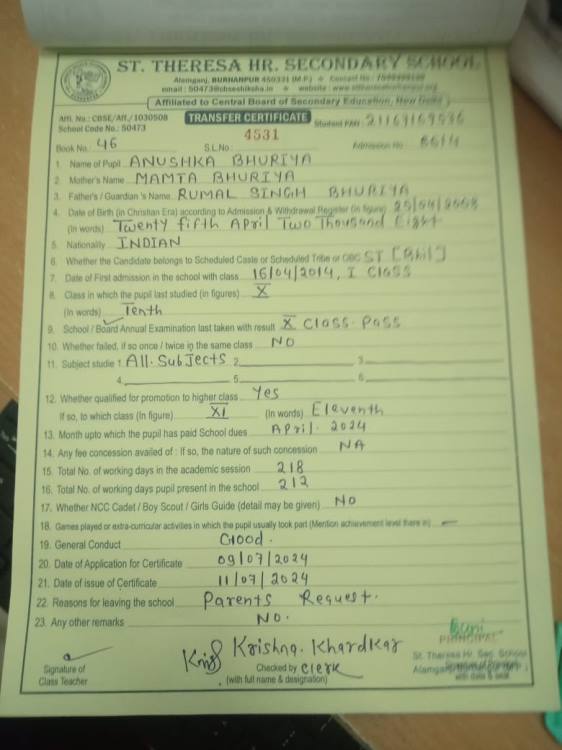 ST. THERESA HR. SECONDARY SCHOOL
Alamganj, BURHANPUR 450331 (M.P.)
email : 50473@cbseshiksha.in website :
Affiliated to Central Board of Secondary Education, New Delhi
Affl. No.: CBSE/Aff./1030508 TRANSFER CERTIFICATE Student PAN
School Code No.: 50473
Book No. 46 S.L No. 4531 Admission No
1. Name of Pupil ANUSHKA BHURIYA
2. Mother's Name MAMTA BHURIYA
3. Father's / Guardian 's Name RUMAL SINGH BHURIYA
4. Date of Birth (in Christian Era) according to Admission & Withdrawal Register (in figure) 25/04/2008
(In words) Twenty fifth April Two Thousand Eight
5. Nationality INDIAN
6. Whether the Candidate belongs to Scheduled Caste or Scheduled Tribe or OBC ST
7. Date of First admission in the school with class 16/04/2014, I Class
8. Class in which the pupil last studied (in figures) X
(In words) Tenth
9. School / Board Annual Examination last taken with result X Class. Pass
10. Whether failed, if so once / twice in the same class NO
11. Subject studie 1. All. Subjects 2. 3.
4. 5. 6.
12. Whether qualified for promotion to higher class Yes
If so, to which class (In figure) XI (In words) Eleventh
13. Month upto which the pupil has paid School dues April. 2024
14. Any fee concession availed of : If so, the nature of such concession NA
15. Total No. of working days in the academic session 218
16. Total No. of working days pupil present in the school 212
17. Whether NCC Cadet / Boy Scout / Girls Guide (detail may be given) NO
18. Games played or extra-curricular activities in which the pupil usually took part (Mention achievement level there in) —
19. General Conduct Good.
20. Date of Application for Certificate 09/07/2024
21. Date of issue of Certificate 11/07/2024
22. Reasons for leaving the school Parents Request.
23. Any other remarks NO.
PRINCIPAL
Krishna. Khardkar
St. Theresa Hr. Sec. School
Signature of Checked by Clerk
Class Teacher (with full name & designation)